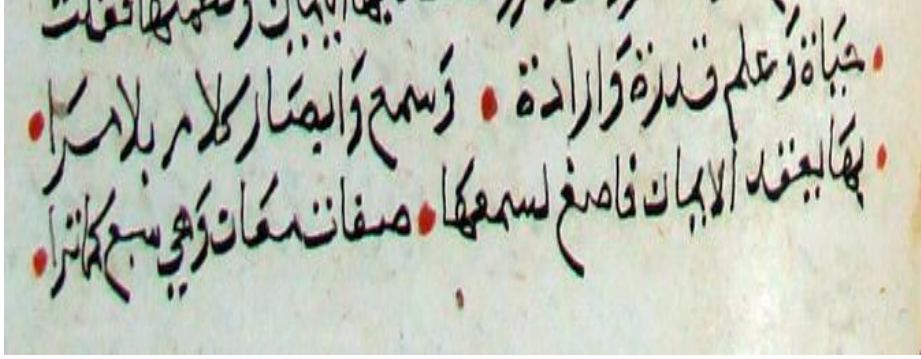 حياة وعلم قدرة وارادة وسمع وابصار كلام بلا مرا
بها يعقد الايمان فاصغ لسمعها صفات معان وهي سبع كما ترا